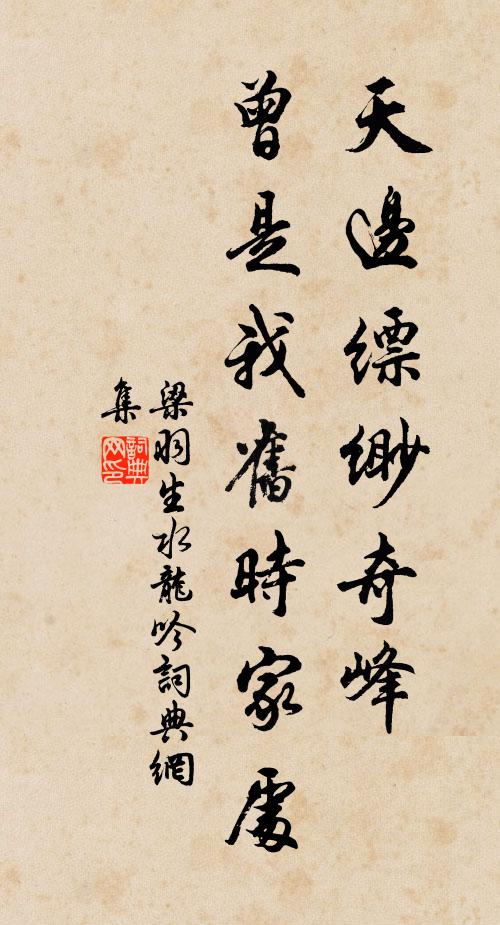 天邊縹緲奇峰
曾是我舊時家處
梁羽生水龍吟詞典網
集
詞典
网印